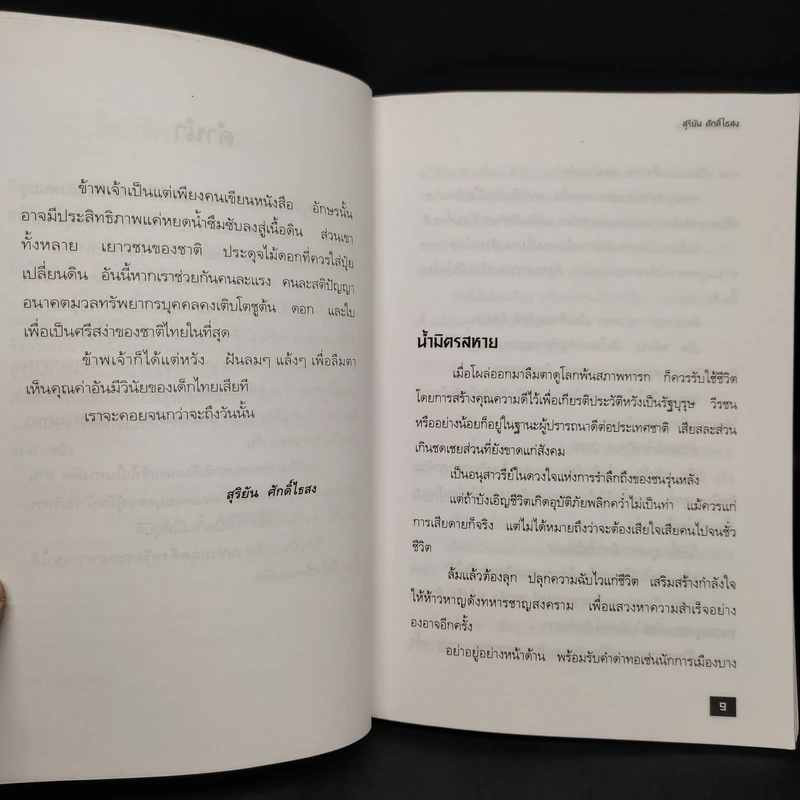 ข้าพเจ้าเป็นแต่เพียงคนเขียนหนังสือ อักษรนั้น
อาจมีประสิทธิภาพแค่หยดน้ำซึมซับลงสู่เนื้อดิน ส่วนเขา
ทั้งหลาย เยาวชนของชาติ ประดุจไม้ดอกที่ควรใส่ปุ๋ย
เปลี่ยนดิน อันนี้หากเราช่วยกันคนละแรง คนละสติปัญญา
อนาคตมวลทรัพยากรบุคคลคงเติบโตชูต้น ดอก และใบ
เพื่อเป็นศรีสง่าของชาติไทยในที่สุด
ข้าพเจ้าก็ได้แต่หวัง ฝันลมๆ แล้งๆ เพื่อลืมตา
เห็นคุณค่าอันมีวินัยของเด็กไทยเสียที
เราจะคอยจนกว่าจะถึงวันนั้น
สุริยัน ศักดิ์ไธสง
สุริยัน ศักดิ์ไธสง
น้ำมิตรสหาย
เมื่อโผล่ออกมาลืมตาดูโลกพ้นสภาพทารก ก็ควรรับใช้ชีวิต
โดยการสร้างคุณความดีไว้เพื่อเกียรติประวัติหวังเป็นรัฐบุรุษ วีรชน
หรืออย่างน้อยก็อยู่ในฐานะผู้ปรารถนาดีต่อประเทศชาติ เสียสละส่วน
เกินชดเชยส่วนที่ยังขาดแก่สังคม
เป็นอนุสาวรีย์ในดวงใจแห่งการรำลึกถึงของชนรุ่นหลัง
แต่ถ้าบังเอิญชีวิตเกิดอุบัติภัยพลิกคว่ำไม่เป็นท่า แม้ควรแก่
การเสียดายก็จริง แต่ไม่ได้หมายถึงว่าจะต้องเสียใจเสียคนไปจนชั่ว
ชีวิต
ล้มแล้วต้องลุก ปลุกความฉับไวแก่ชีวิต เสริมสร้างกำลังใจ
ให้ห้าวหาญดังทหารชาญสงคราม เพื่อแสวงหาความสำเร็จอย่าง
องอาจอีกครั้ง
อย่าอยู่อย่างหน้าด้าน พร้อมรับคำด่าทอเช่นนักการเมืองบาง
9